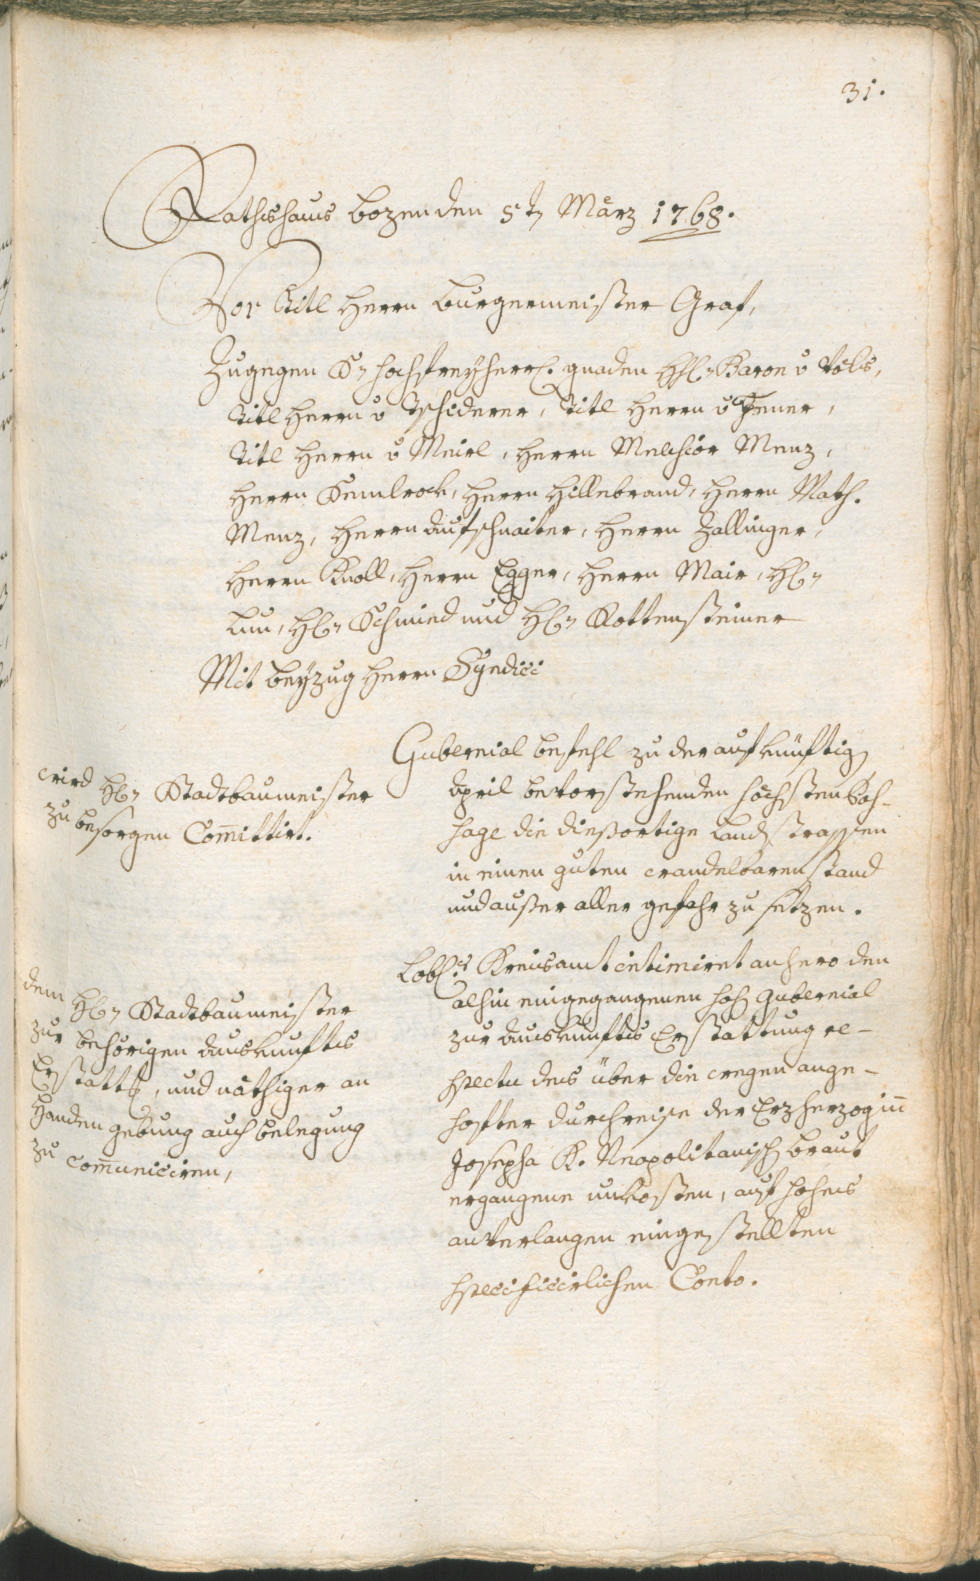 31.
Rathshaus bozen den 5t März 1768.
Vor Titl Herrn Burgermeister Graf,
Zugegen Sr hochfreyherrl. gnaden H. Baron v Völs,
Titl Herrn v Tschiderer, Titl Herrn v Jenner,
Titl Herrn v Meirl, Herrn Melchior Menz,
Herrn Kemlrock, Herrn Hillebrand, Herrn Math.
Menz, Herrn aufschnaiter, Herrn Zallinger,
Herrn Knoll, Herrn Egger, Herrn Mair, H.
Lun, H. Schmied und H. Rottensteiner
Mit beyzug Herrn Syndici
Gubernial befehl zu der auf künftig
April bevorstehenden höchsten
die diesortige Landstrassen
in einen guten wandelbaren stand
und außer aller gefahr zu setzen.
wird H. Stadtbaumeister
zu besorgen Com̅ittirt.
Lobl.s Kreisamt intimiret anhero den
alhin eingegangenen hoh Gubernial
zur auskunfts Erstattung re-
spectu des über die wegen ange-
hofter durchreise der Erzherzogin̅
Josepha K. Neapolitanisch braut
ergangene unkosten, auf hohes
anverlangen eingestellten
specificirlichen Conto.
dem H. Stadtbaumeister
zur behörigen auskunfts
Erstattg, und nöthiger an
Handen gebung auch belegung
zu com̅uniciren,